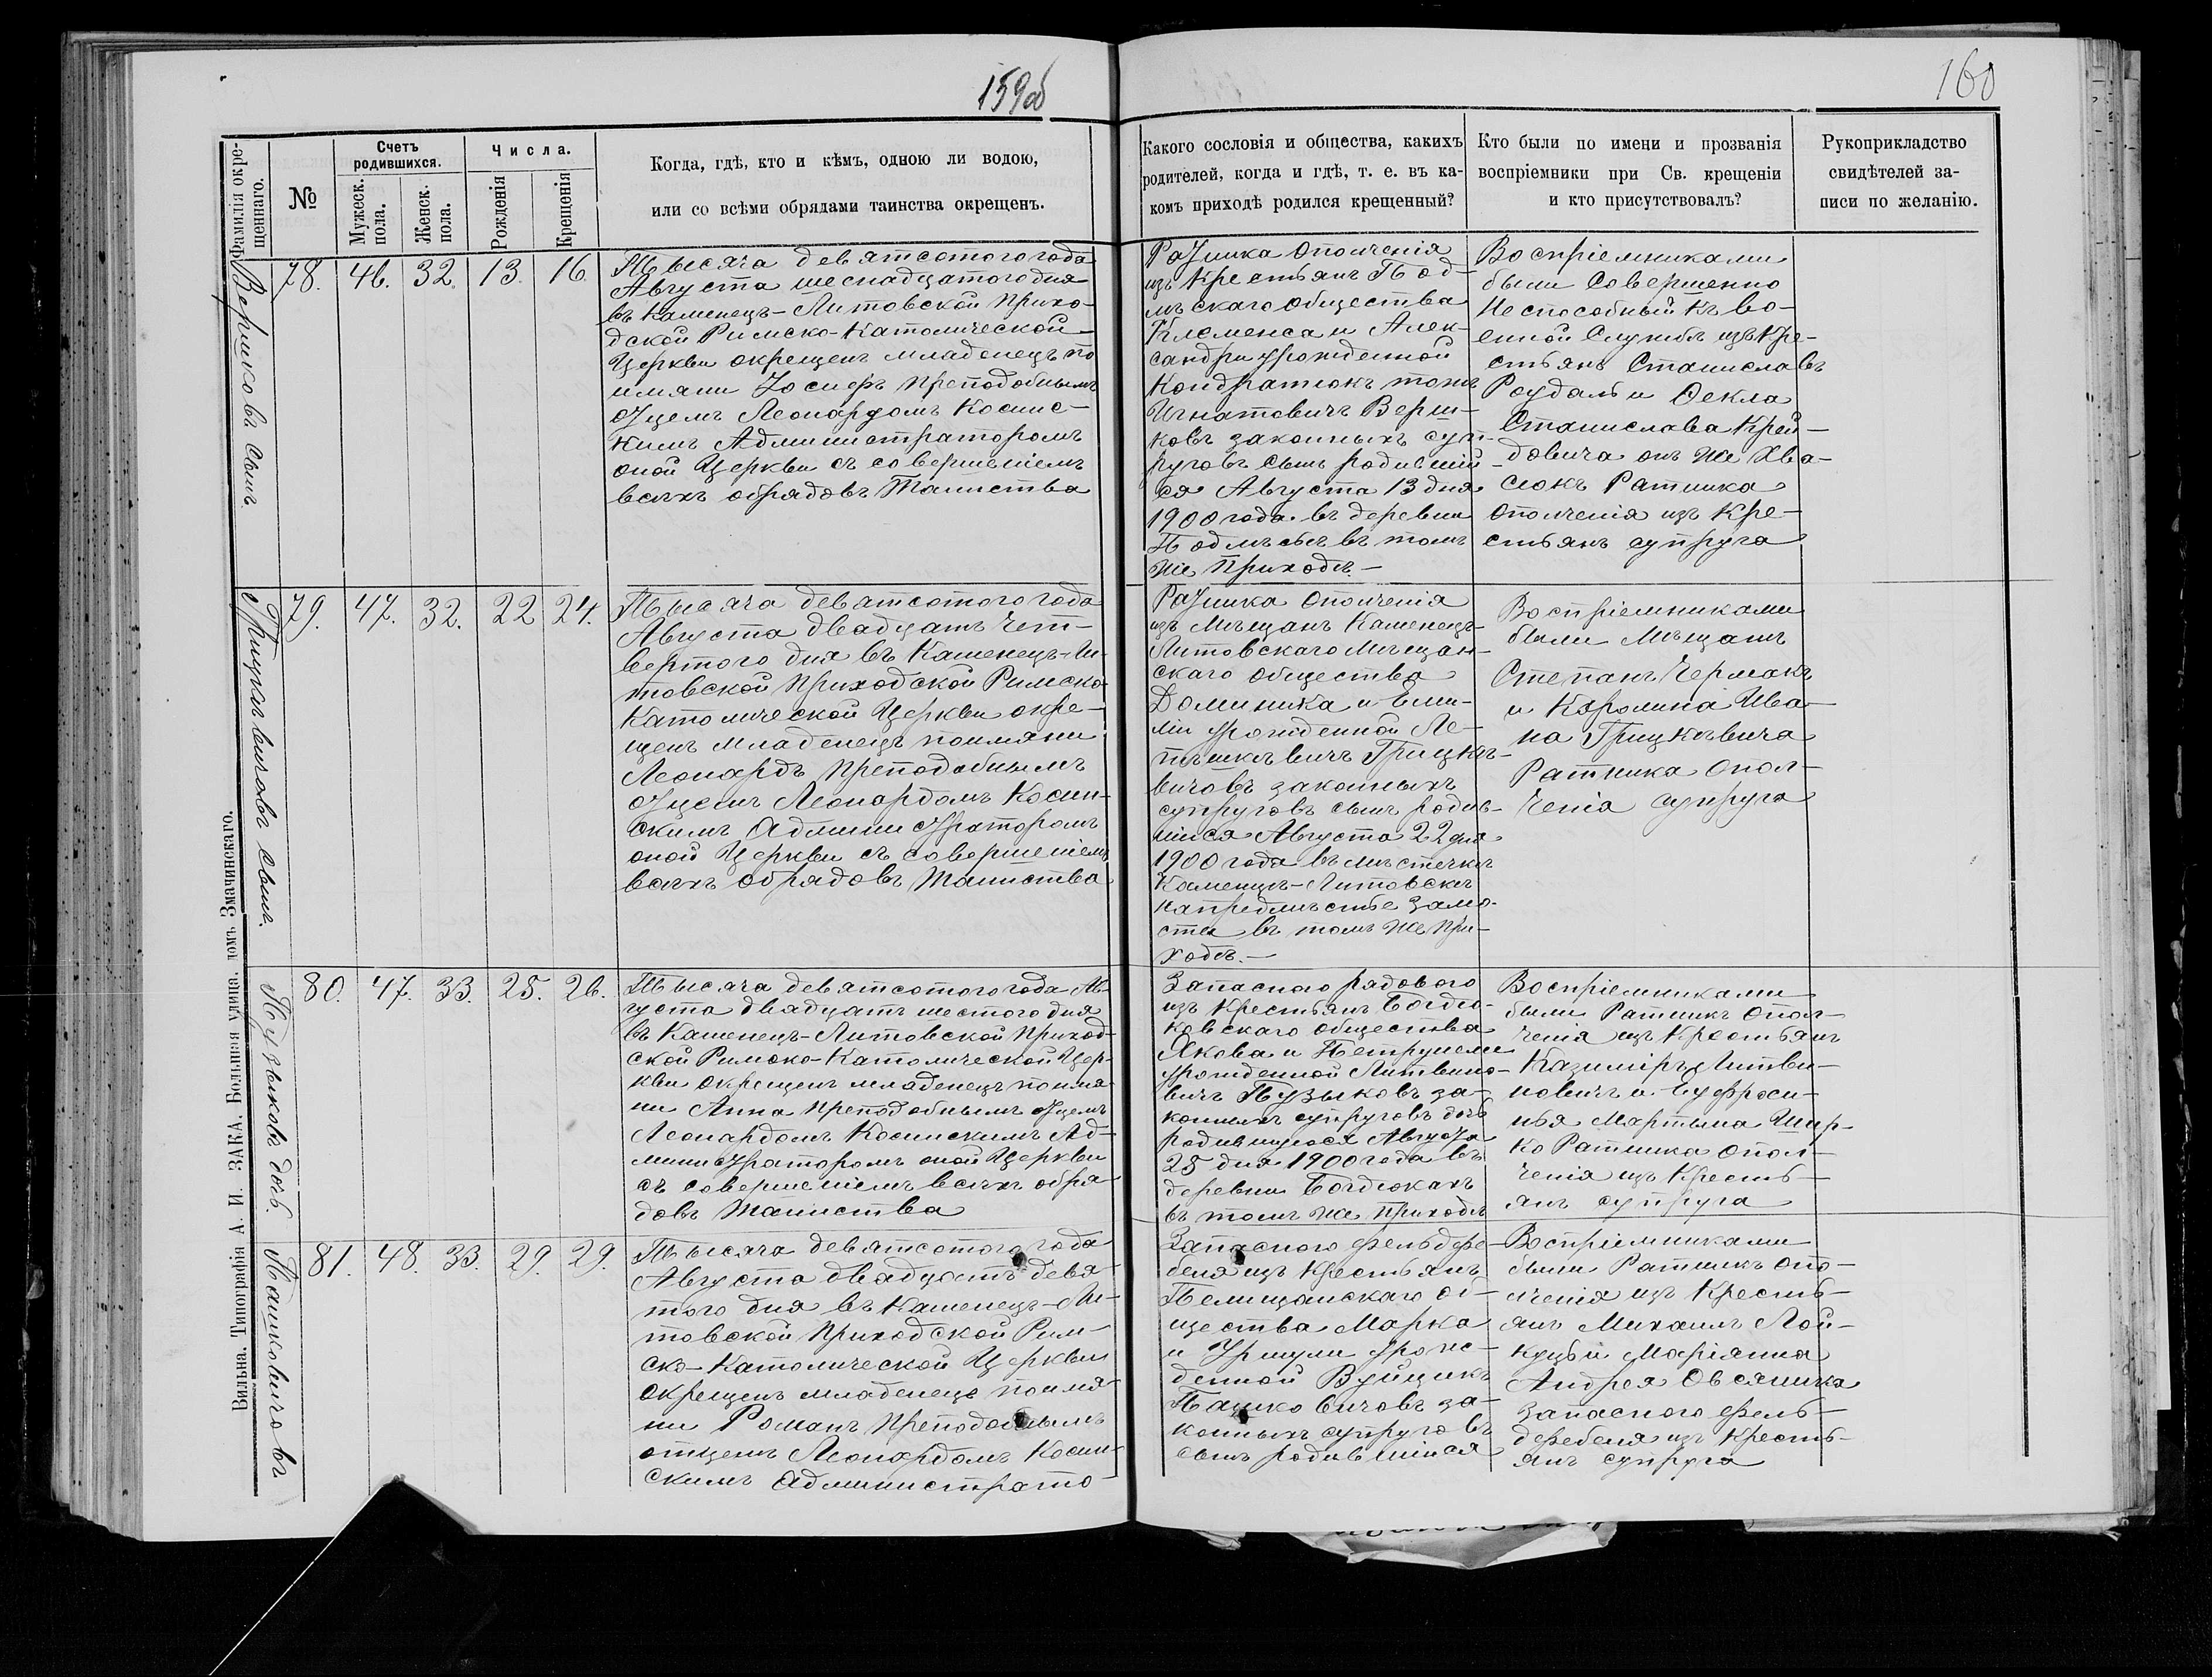 159об
160
Фамилія окре-
щеннаго.
№
Счетъ
родившихся.
Мужеск.
пола.
Женск.
пола.
Числа.
Рожденія
Крещенія
Когда, гдѣ, кто и кѣмъ, одною ли водою,
или со всѣми обрядами таинства окрещенъ.
Какого сословія и общества, какихъ
родителей, когда и гдѣ, т. е. въ ка-
комъ приходѣ родился крещенный?
Кто были по имени и прозванія
воспріемники при Св. крещеніи
и кто присутствовалъ?
Рукоприкладство
свидѣтелей за-
писи по желанію.
Вершковъ сынъ
78. 46. 32. 13. 16.
Тысяча девятсотого года
Августа шеснадцатого дня
въ Каменецъ-Литовской прихо-
дской Римско-Католической
Церкви окрещенъ младенецъ по
имяни Іосифъ преподобнымъ
Отцемъ Леонардомъ Косинс-
кимъ Администраторомъ
оной Церкви съ совершеніемъ
всѣхъ обрядовъ Таинства
Ратника Ополченія
изъ Крестьянъ Под-
лѣскаго общества
Клеменса и Алек-
сандры урожденной
Кондратюкъ тожъ
Игнатовичъ Верш-
ковъ законныхъ суп-
руговъ сынъ родивший-
ся Августа 13 дня
1900 года въ деревни
Подлѣсьѣ въ томъ
же приходѣ.-
Воспріемниками
были Совершенно
Неспособный къ во-
енной Службѣ изъ Кре-
стьянъ Станиславъ
Роудаль и Оекла
Станислава Крей-
довича онъ же Ква-
сюкъ Ратника
Ополченія изъ Кре-
стьянъ супруга
Грицкѣвичовъ сынъ.
79. 47. 32. 22 24.
Тысяча девятсотого года
Августа двадцать чет-
вертого дня въ Каменецъ-Ли-
товской приходской Римско-
Католической Церкви окре-
щенъ младенецъ поимяни
Леонардъ преподобнымъ
Отцемъ Леонардомъ Косин-
скимъ Администраторомъ
оной Церкви съ совершеніемъ
всѣхъ обрядовъ Таинства
Ратника Ополченія
изъ Мѣщанъ Каменецъ-
Литовскаго Мѣщан-
скаго общества
Доминика и Еми-
ліи урожденной Ле-
пѣшкѣвичъ Грицкѣ-
вичовъ законныхъ
супруговъ сынъ родив-
шійся Августа 22 дня
1900 года въ мѣстечкѣ
Каменцѣ-Литовскѣ
напредмѣстье Замо-
стье въ томъ же при-
ходѣ.-
Воспріемниками
были Мѣщанъ
Степанъ Чермакъ
и Каролина Ива-
на Грицкѣвича
Ратника Опол-
ченія супруга
Пузыковъ дочь.
80. 47. 33. 25. 26.
Тысяча девятсотого года Ав-
густа двадцать шестого дня
въ Каменецъ-Литовской приход-
ской Римско-Католической Цер-
кви окрещенъ младенецъ поимя-
ни Анна преподобнымъ Отцемъ
Леонардомъ Косинскимъ Ад-
министраторомъ оной Церкви
съ совершеніемъ всѣхъ обря-
довъ Таинства
Запасного рядового
изъ Крестьянъ Богдю-
ковскаго общества
Якова и Петрунели
урожденной Литвино-
вичъ Пузыковъ за-
конныхъ супруговъ дочь
родившуюся Августа
25 дня 1900 года въ
деревни Богдюкахъ
въ томъ же приходѣ
Воспріемниками
были Ратникъ Опол-
ченія изъ Крестьянъ
Казиміръ Литви-
новичъ и Еуфроси-
нья Мартына Шир-
ко Ратника Опол-
ченія изъ Кресть-
янъ супруга
Пашковичовъ
81. 48. 33. 29. 29.
Тысяча девятсотого года
Августа двадцать девя-
того дня въ Каменецъ-Ли-
товской приходской Рим-
ско-Католической Церкви
окрещенъ младенецъ поимя-
ни Романъ преподобнымъ
отцемъ Леонардомъ Косин-
скимъ Администрато-
Запасного фельдфе-
беля изъ Крестьянъ
Пелищанскаго об-
щества Марка
и Уршули урож-
денной Вуйцикъ
Пашковичовъ за-
конныхъ супруговъ
сынъ родившійся
Воспріемниками
были Ратникъ Опо-
лченія изъ Кресть-
янъ Михаилъ Лой-
куць и Маріянна
Андрея Овсяника
запасного фель-
дфебеля изъ Кресть-
янъ супруга
Вильна. Типографія А. И. ЗАКА, Большая улица, домъ Змачинскаго.